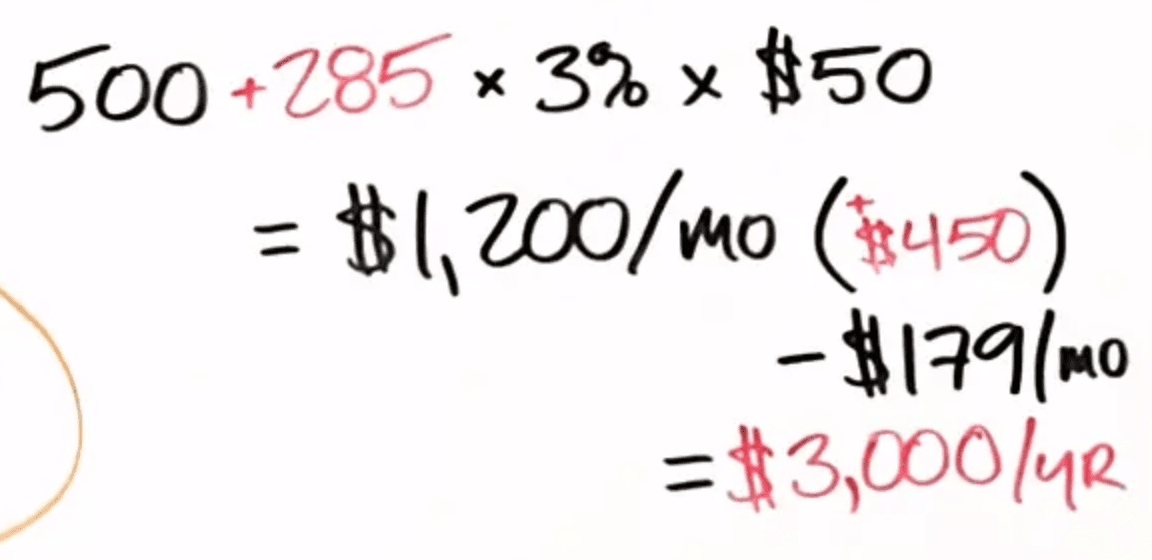 500 +285 × 3% × $50
= $1,200/mo (+$450)
- $179/mo
= $3,000/yR